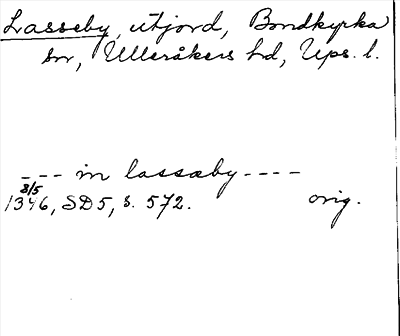 Lasseby, utjord, Bondkyrka
sn, Ulleråkers hd, Ups. l.
- - - in lassæby - - - -
8/5
1346, SD5, s. 572. orig.